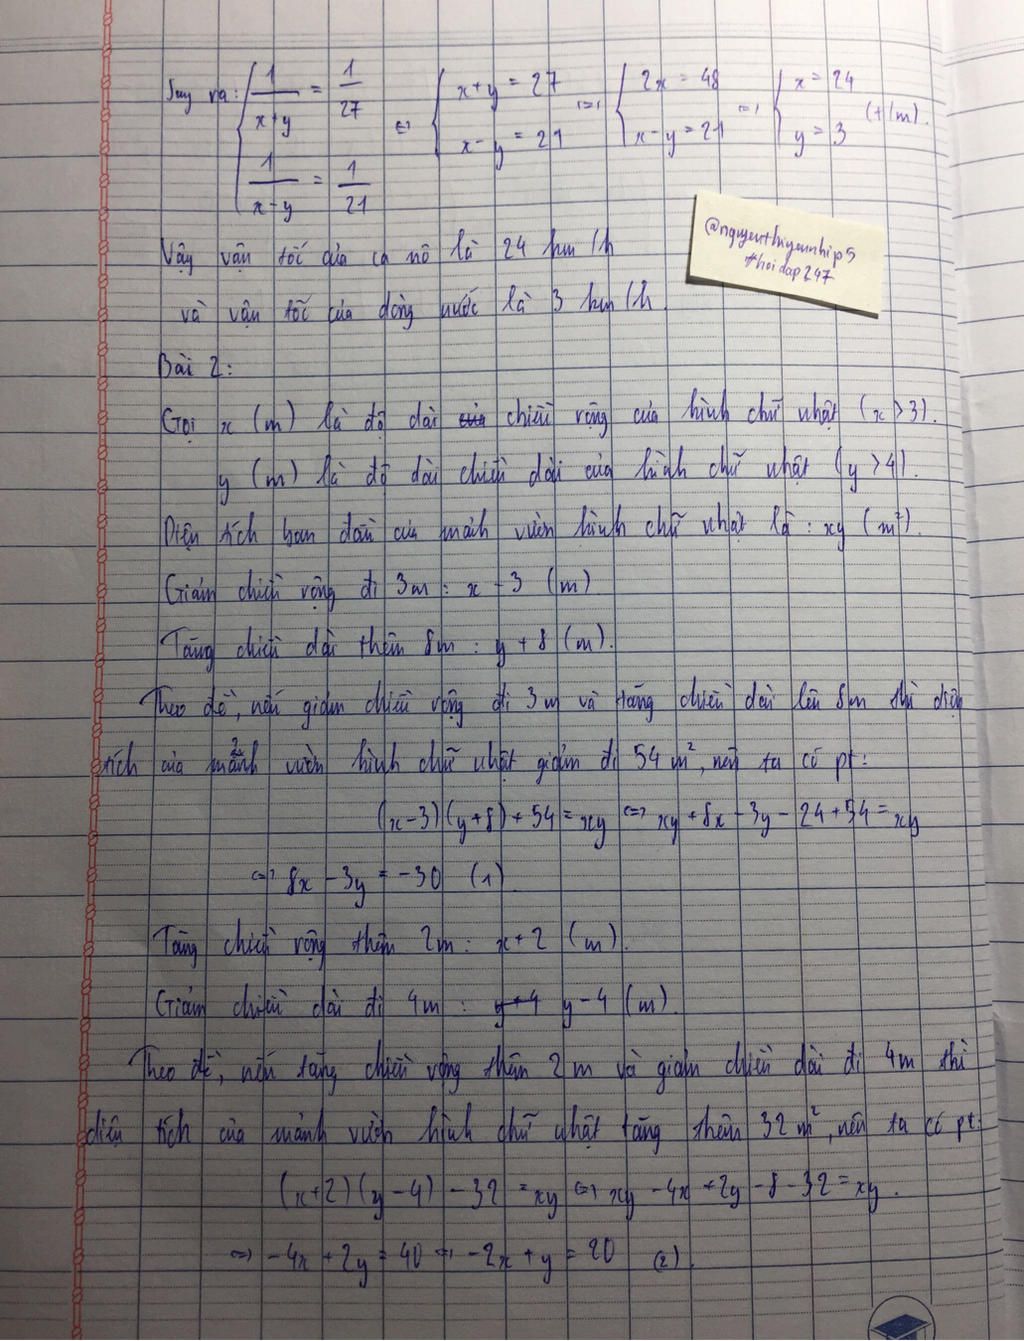 Suy ra: { 1/(x+y) = 1/27 ; 1/(x-y) = 1/21 <=> { x+y = 27 ; x-y = 21 <=> { 2x = 48 ; x-y = 21 <=> { x = 24 ; y = 3 (t/m).
Vậy vận tốc của ca nô là 24 km/h
và vận tốc của dòng nước là 3 km/h.
@nguyenthiyennhip5
#hoidap247
Bài 2:
Gọi x (m) là độ dài của chiều rộng của hình chữ nhật (x > 3).
y (m) là độ dài chiều dài của hình chữ nhật (y > 4).
Diện tích ban đầu của mảnh vườn hình chữ nhật là : xy (m²).
Giảm chiều rộng đi 3m : x - 3 (m)
Tăng chiều dài thêm 8m : y + 8 (m).
Theo đề, nếu giảm chiều rộng đi 3m và tăng chiều dài lên 8m thì diện
tích của mảnh vườn hình chữ nhật giảm đi 54 m², nên ta có pt:
(x-3)(y+8) + 54 = xy <=> xy + 8x - 3y - 24 + 54 = xy
<=> 8x - 3y = -30 (1)
Tăng chiều rộng thêm 2m : x + 2 (m).
Giảm chiều dài đi 4m : y+4 y-4 (m).
Theo đề, nếu tăng chiều rộng thêm 2m và giảm chiều dài đi 4m thì
diện tích của mảnh vườn hình chữ nhật tăng thêm 32 m², nên ta có pt:
(x+2)(y-4) - 32 = xy <=> xy - 4x + 2y - 8 - 32 = xy.
<=> -4x + 2y = 40 <=> -2x + y = 20 (2).